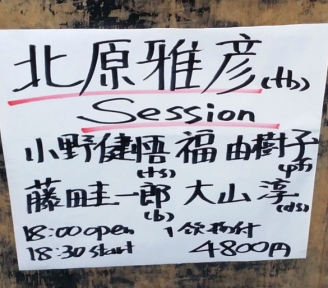 北原雅彦(tb)
Session
小野健悟(ts) 福由樹子(pf)
藤田圭一郎(b) 大山淳(ds)
18:00 open 1飲物付
18:30 start 4800円